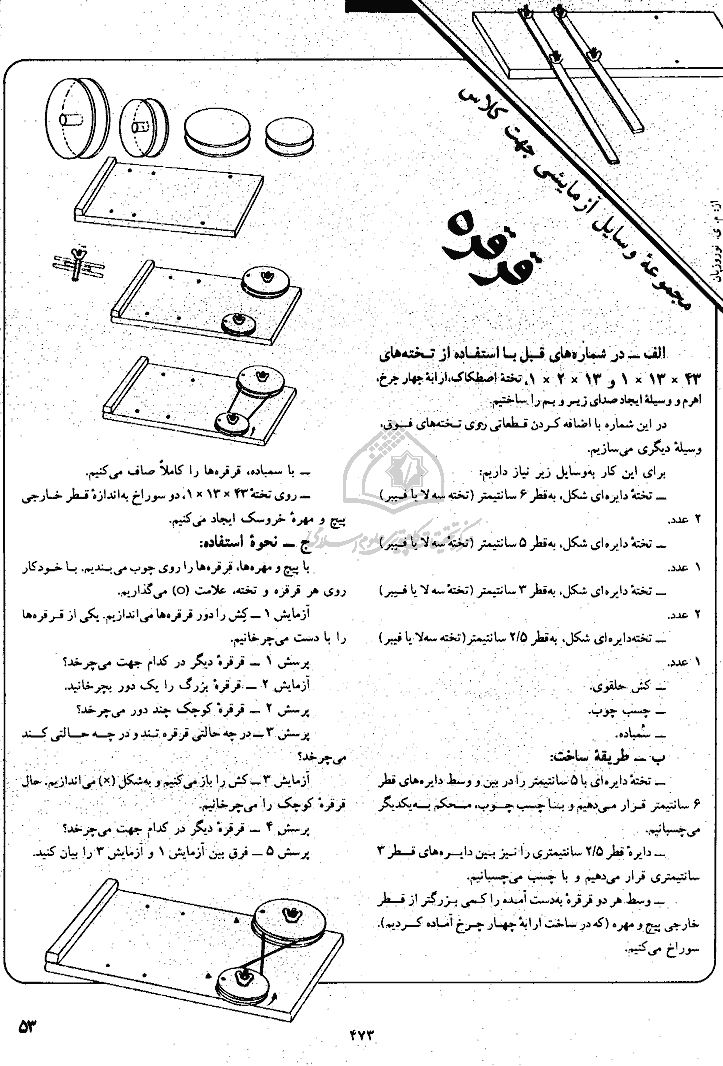 مجموعهٔ وسایل آزمایشی جهت کلاس
قرقره
از: م. ی. نوروزیان
الف ــ در شماره‌های قبل بـا استفاده از تـخته‌های
۴۳ × ۱۳ × ۱ و ۱۳ × ۲ × ۱، تختهٔ اصطکاک، ارابهٔ چهار چرخ،
اهرم و وسیلهٔ ایجاد صدای زیـر و بـم را ساختیم.
در این شماره با اضافه کـردن قـطعاتی روی تـخته‌های فـوق،
وسیلهٔ دیگری می‌سازیم.
برای این کار به‌وسایل زیر نیاز داریم:
ــ تختهٔ دایره‌ای شکل، به‌قطر ۶ سانتیمتر (تخته سه‌لا یا فیبر)
۲ عدد.
ــ تختهٔ دایره‌ای شکل، به‌قطر ۵ سانتیمتر (تختهٔ سه‌لا یا فـیبر)
۱ عدد.
ــ تختهٔ دایره‌ای شکل، به‌قطر ۳ سانتیمتر (تختهٔ سه‌لا یا فـیبر)
۲ عدد.
ــ تخته‌دایره‌ای شکل، به‌قطر ۲/۵ سانتیمتر (تخته سه‌لا یا فیبر)
۱ عدد.
ــ کش حلقوی.
ــ چسب چوب.
ــ سُمباده.
ب ــ طریقهٔ ساخت:
ــ تختهٔ دایره‌ای با ۵ سانتیمتر را در بین و وسط دایره‌های قطر
۶ سانتیمتر قـرار مـی‌دهیم و بـا چسب چـوب، مـحکم بـه‌یکدیگر
می‌چسبانیم.
ــ دایرهٔ قطر ۲/۵ سانتیمتری را نـیز بـین دایـره‌های قـطر ۳
سانتیمتری قرار می‌دهیم و با چسب می‌چسبانیم.
ــ وسط هر دو قرقرهٔ به‌دست آمـده را کـمی بـزرگتر از قـطر
خارجی پیچ و مهره (که در ساخت ارابهٔ چهار چرخ آماده کـردیم)،
سوراخ می‌کنیم.
ــ با سمباده، قرقره‌ها را کاملاً صاف می‌کنیم.
ــ روی تختهٔ ۴۳ × ۱۳ × ۱، دو سوراخ به‌اندازهٔ قـطر خـارجی
پیچ و مهرهٔ خروسک ایجاد می‌کنیم.
ج ــ نحوهٔ استفاده:
با پیچ و مهره‌ها، قرقره‌ها را روی چوب می‌بندیم. بـا خـودکار
روی هر قرقره و تخته، علامت (o) می‌گذاریم.
آزمایش ۱ ــ کِش را دور قرقره‌ها می‌اندازیم. یکی از قـرقره‌ها
را با دست می‌چرخانیم.
پرسش ۱ ــ قرقرهٔ دیگر در کدام جهت می‌چرخد؟
آزمایش ۲ ــ قرقرهٔ بزرگ را یک دور بچرخانید.
پرسش ۲ ــ قرقرهٔ کوچک چند دور می‌چرخد؟
پرسش ۳ ــ در چه حالتی قرقره تـند و در چـه حـالتی کـند
می‌چرخد؟
آزمایش ۳ ــ کش را باز می‌کنیم و به‌شکل (×) می‌اندازیم. حال
قرقرهٔ کوچک را می‌چرخانیم.
پرسش ۴ ــ قرقرهٔ دیگر در کدام جهت می‌چرخد؟
پرسش ۵ ــ فرق بین آزمایش ۱ و آزمایش ۳ را بیان کنید.
۵۳
۴۷۳